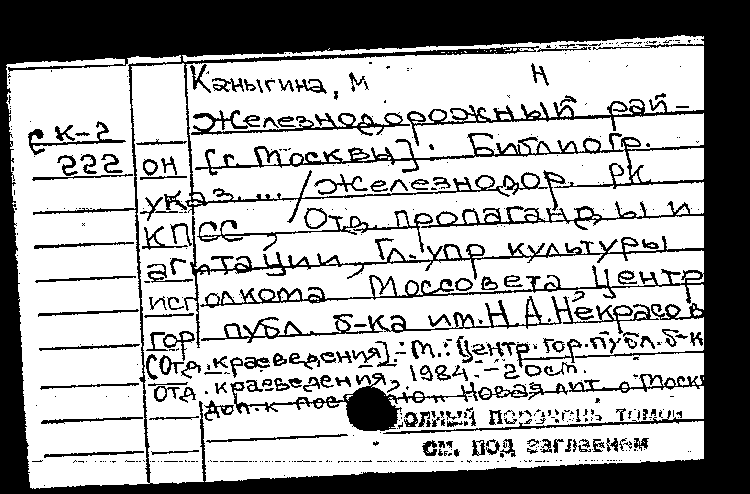 Каныгина, М Н
Железнодорожный рай-
СК-2
222 он [г. Москвы]: Библиогр.
указ.... / Железнодор. РК
КПСС, Отд. пропаганды и
агитации, Гл. упр культуры
исполкома Моссовета, Центр
гор публ. б-ка им. Н.А. Некрасов
[Отд. краеведения]. - М.: Центр. гор. публ. б-к
отд. краеведения, 1984. - 20 см.
Доп. к Новая лит. о Моск
олный перечень томов
см. под заглавием